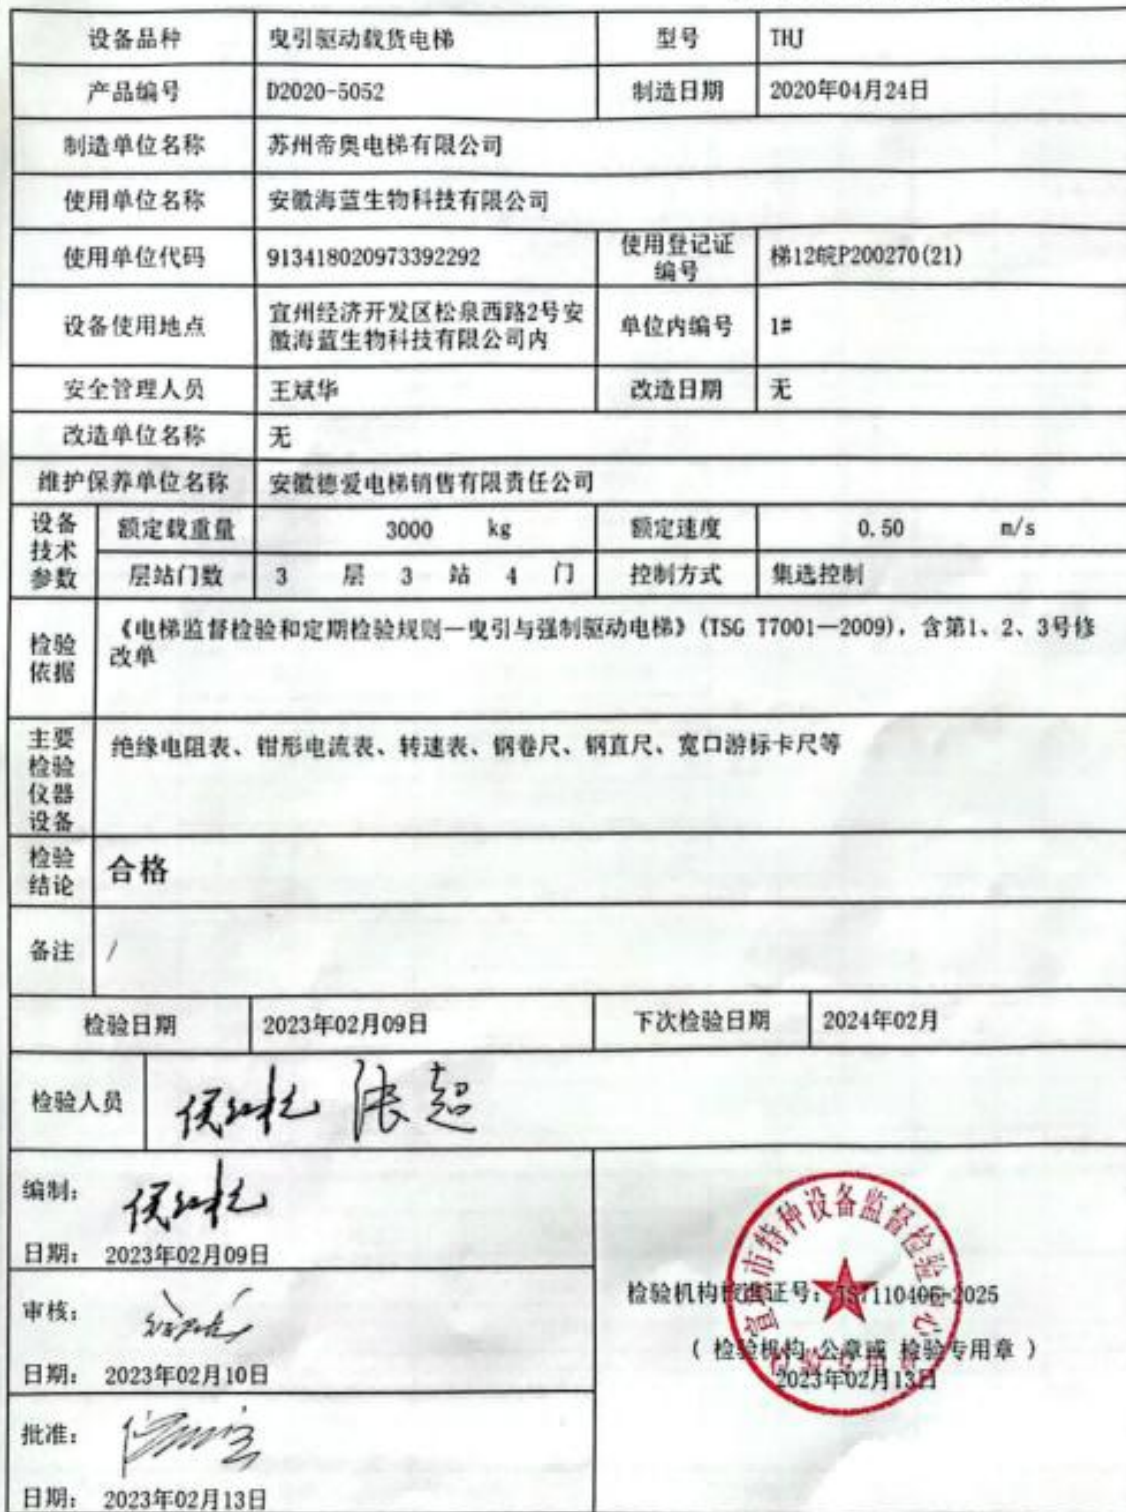 设备品种 曳引驱动载货电梯 型号 THJ
产品编号 D2020-5052 制造日期 2020年04月24日
制造单位名称 苏州帝奥电梯有限公司
使用单位名称 安徽海蓝生物科技有限公司
使用单位代码 913418020973392292 使用登记证
编号 梯12皖P200270(21)
设备使用地点 宣州经济开发区松泉西路2号安
徽海蓝生物科技有限公司内 单位内编号 1#
安全管理人员 王斌华 改造日期 无
改造单位名称 无
维护保养单位名称 安徽德爱电梯销售有限责任公司
设备
技术
参数
额定载重量 3000 kg 额定速度 0.50 m/s
层站门数 3 层 3 站 4 门 控制方式 集选控制
检验
依据
《电梯监督检验和定期检验规则—曳引与强制驱动电梯》(TSG T7001—2009),含第1、2、3号修
改单
主要
检验
仪器
设备
绝缘电阻表、钳形电流表、转速表、钢卷尺、钢直尺、宽口游标卡尺等
检验
结论
合格
备注 /
检验日期 2023年02月09日 下次检验日期 2024年02月
检验人员 张超
编制:
日期: 2023年02月09日
审核:
日期: 2023年02月10日
批准:
日期: 2023年02月13日
宣城市特种设备监督检验中心
检验机构核准证号: 110406-2025
( 检验机构 公章或 检验专用章 )
2023年02月13日